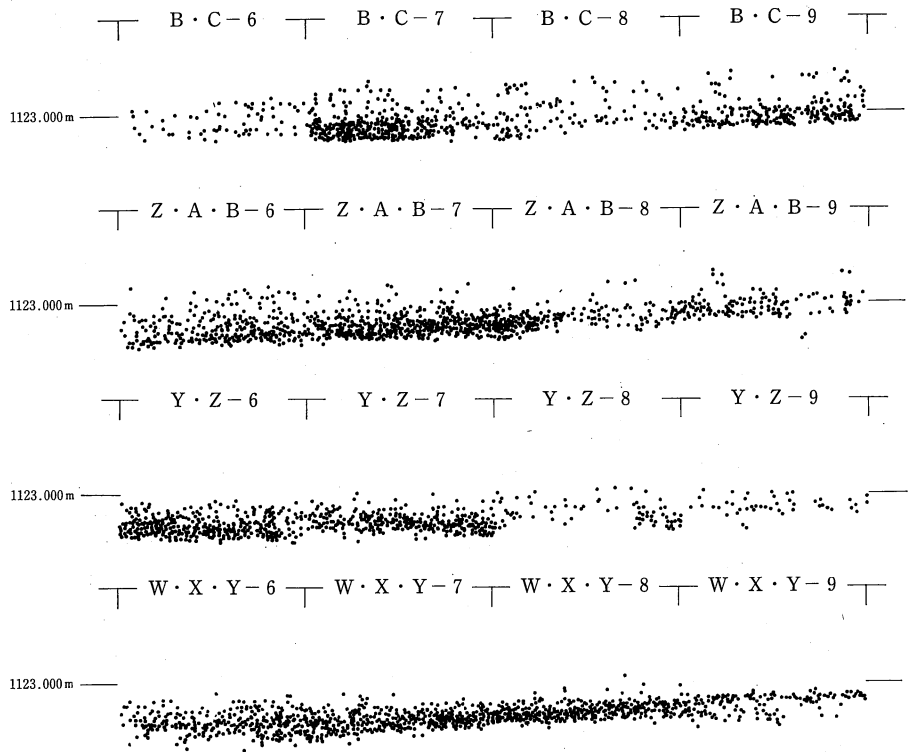 B・C－6 B・C－7 B・C－8 B・C－9
1123.000m
Z・A・B－6 Z・A・B－7 Z・A・B－8 Z・A・B－9
1123.000m
Y・Z－6 Y・Z－7 Y・Z－8 Y・Z－9
1123.000m
W・X・Y－6 W・X・Y－7 W・X・Y－8 W・X・Y－9
1123.000m